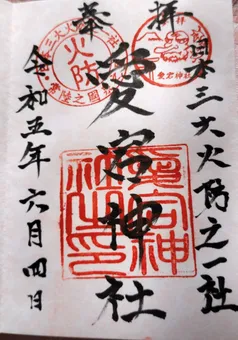 奉拝
日本三大火防之一社
愛宕神社
令和五年六月四日
火防
愛宕神社
愛宕神社之印